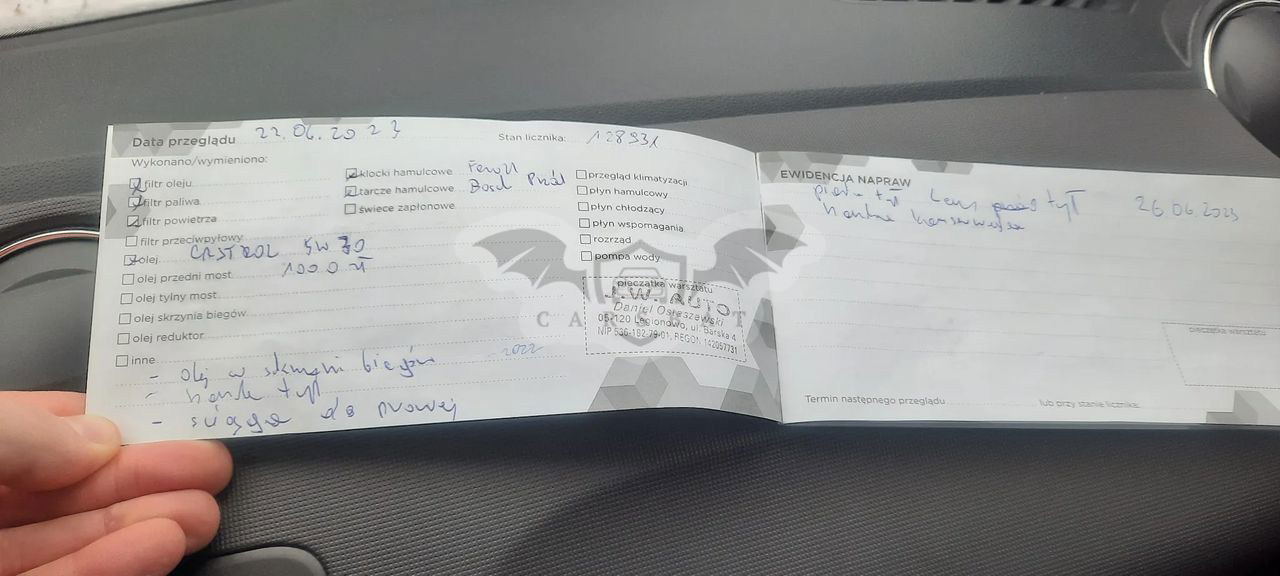 Data przeglądu 22.06.2023 Stan licznika: 128931
Wykonano/wymieniono:
filtr oleju
filtr paliwa
filtr powietrza
filtr przeciwpyłowy
olej CASTROL 5W30
1000 zł
olej przedni most
olej tylny most
olej skrzynia biegów
olej reduktor
inne
- olej w skrzyni biegów 2022
- hamulce tył
- ściąga do prawej
klocki hamulcowe
tarcze hamulcowe Bosch Przód
świece zapłonowe
przegląd klimatyzacji
płyn hamulcowy
płyn chłodzący
płyn wspomagania
rozrząd
pompa wody
pieczątka warsztatu
J.W. AUTO
Daniel Ostaszewski
05-120 Legionowo, ul. Barska 4
NIP 536-182-79-01, REGON 142057731
EWIDENCJA NAPRAW
tył 26.06.2023
pieczątka warsztatu
Termin następnego przeglądu lub przy stanie licznika: